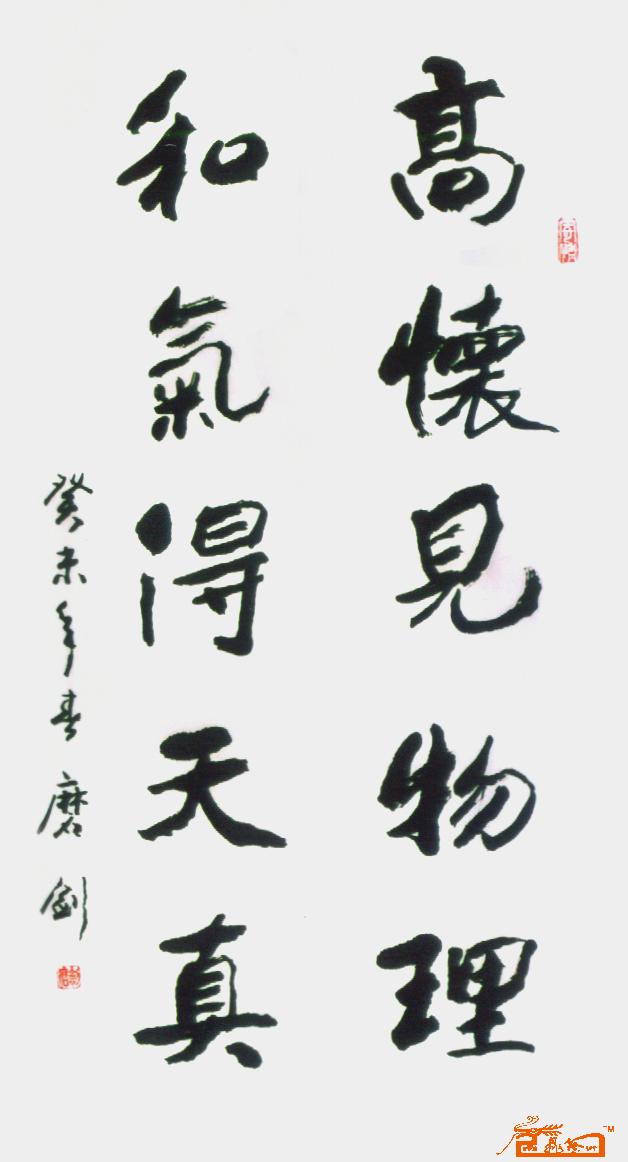 高懷見物理
和氣得天真
癸未年春磨劍